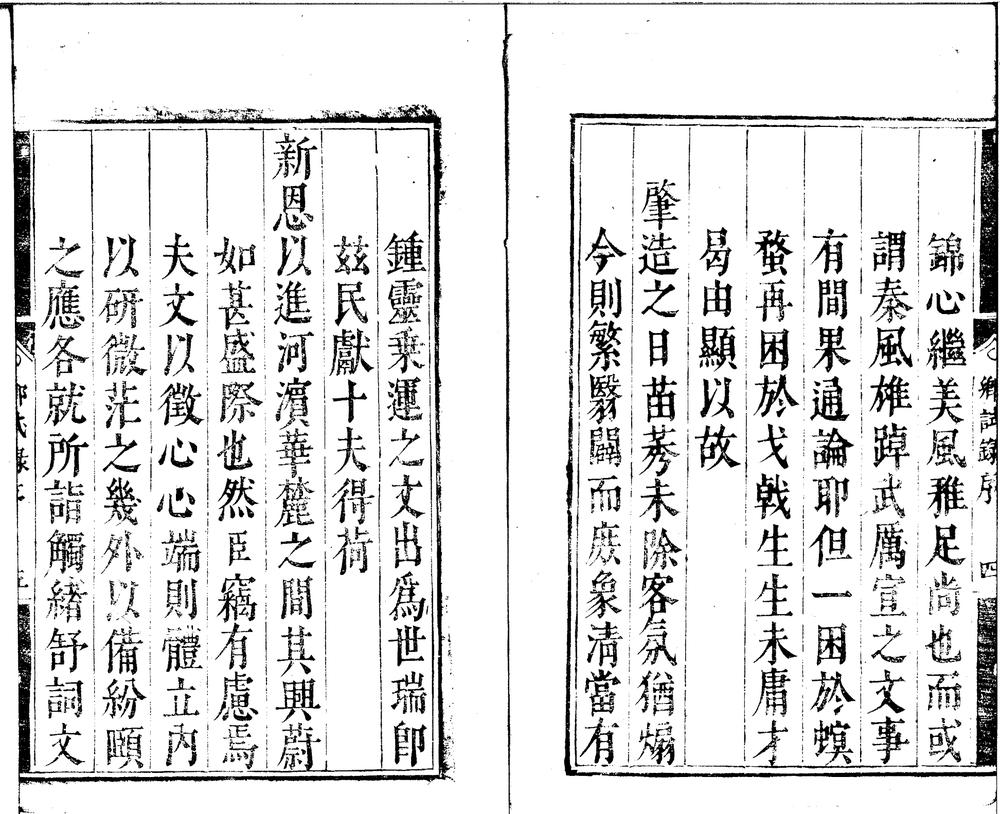 錦心繼美風雅足尚也而或
謂秦風雄踔武厲宣之文事
有間果通論耶但一困於螟
蝥再困於戈戟生生未庸才
曷由顯以故
肇造之日苗莠未除客氛猶煽
今則繁翳闢而庶象清當有
鄉試錄序 四
鍾靈乗運之文出爲世瑞卽
茲民獻十夫得荷
新恩以進河濱華麓之間其興蔚
如甚盛際也然臣竊有慮焉
夫文以徵心心端則體立內
以研微茫之幾外以備紛賾
之應各就所詣觸緒舒詞文